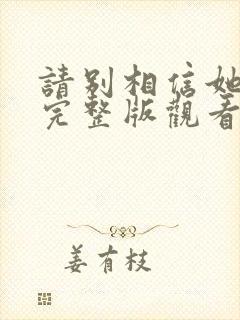 請別相信她
完整版觀看
姜有枝